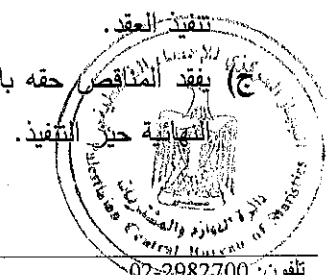 تنفيذ العقد.
ج) يفقد المناقص حقه
النهائية حيز التنفيذ.
دائرة اللوازم والمشتريات
Palestinian Central Bureau of Statistics
تلفون: 02-2982700